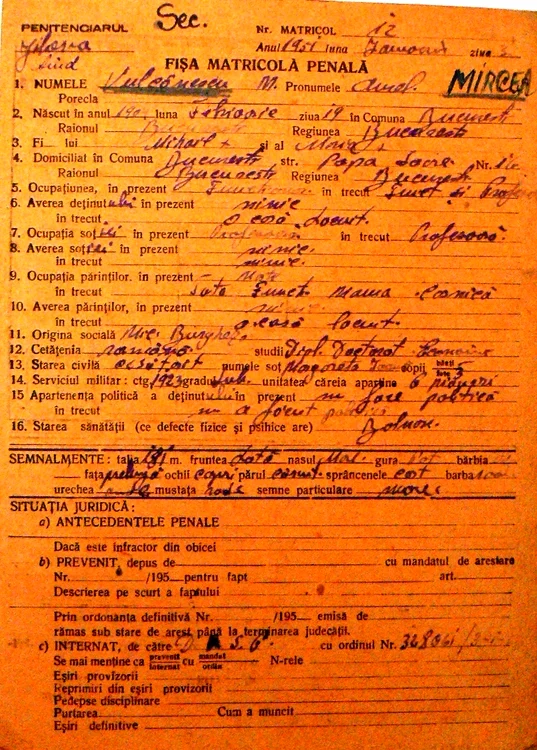 PENITENCIARUL Sec. Nr. MATRICOL 12
Jilava Anul 1951 luna ziua
FIȘA MATRICOLĂ PENALĂ
1. NUMELE Vulcănescu M. Pronumele MIRCEA
Porecla
2. Născut în anul luna ziua 19 în Comuna București
Raionul Regiunea București
3. Fi lui Mihail și al Maria
4. Domiciliat în Comuna București str. Popa Nr. 16
Raionul București Regiunea București
5. Ocupațiunea, în prezent în trecut Funct și Profesor
6. Averea deținutului în prezent nimic
în trecut o casă locuit.
7. Ocupația soției în prezent Profesoară în trecut Profesoară.
8. Averea soției în prezent nimic.
în trecut nimic.
9. Ocupația părinților. în prezent
în trecut Tata Funct. Mama Casnică
10. Averea părinților, în prezent nimic.
în trecut o casă locuit.
11. Origina socială Mic. Burghez
12. Cetățenia română studii Dipl. Doctorat
13. Starea civilă căsătorit numele soț Margareta copii băeți fete 3
14. Serviciul militar: ctg. 1923 gradul Sub. unitatea căreia aparține
15 Apartenența politică a deținutului în prezent nu face politică
în trecut n-a făcut politică
16. Starea sănătății (ce defecte fizice și psihice are) Bolnav.
SEMNALMENTE: talia 181 m. fruntea lată nasul gura bărbia
fața ochii capri părul cărunt. sprâncenele cast barba
urechea mustața rade semne particulare
SITUAȚIA JURIDICĂ:
a) ANTECEDENTELE PENALE
Dacă este infractor din obicei
b) PREVENIT, depus de cu mandatul de arestare
Nr. /195 pentru fapt art.
Descrierea pe scurt a faptului
Prin ordonanța definitivă Nr. /195 emisă de
rămas sub stare de arest până la terminarea judecății.
c) INTERNAT, de către cu ordinul Nr.
Se mai menține ca prevenit internat cu mandat ordin N-rele
Eșiri provizorii
Reprimiri din eșiri provizorii
Pedepse disciplinare
Purtarea Cum a muncit
Eșiri definitive